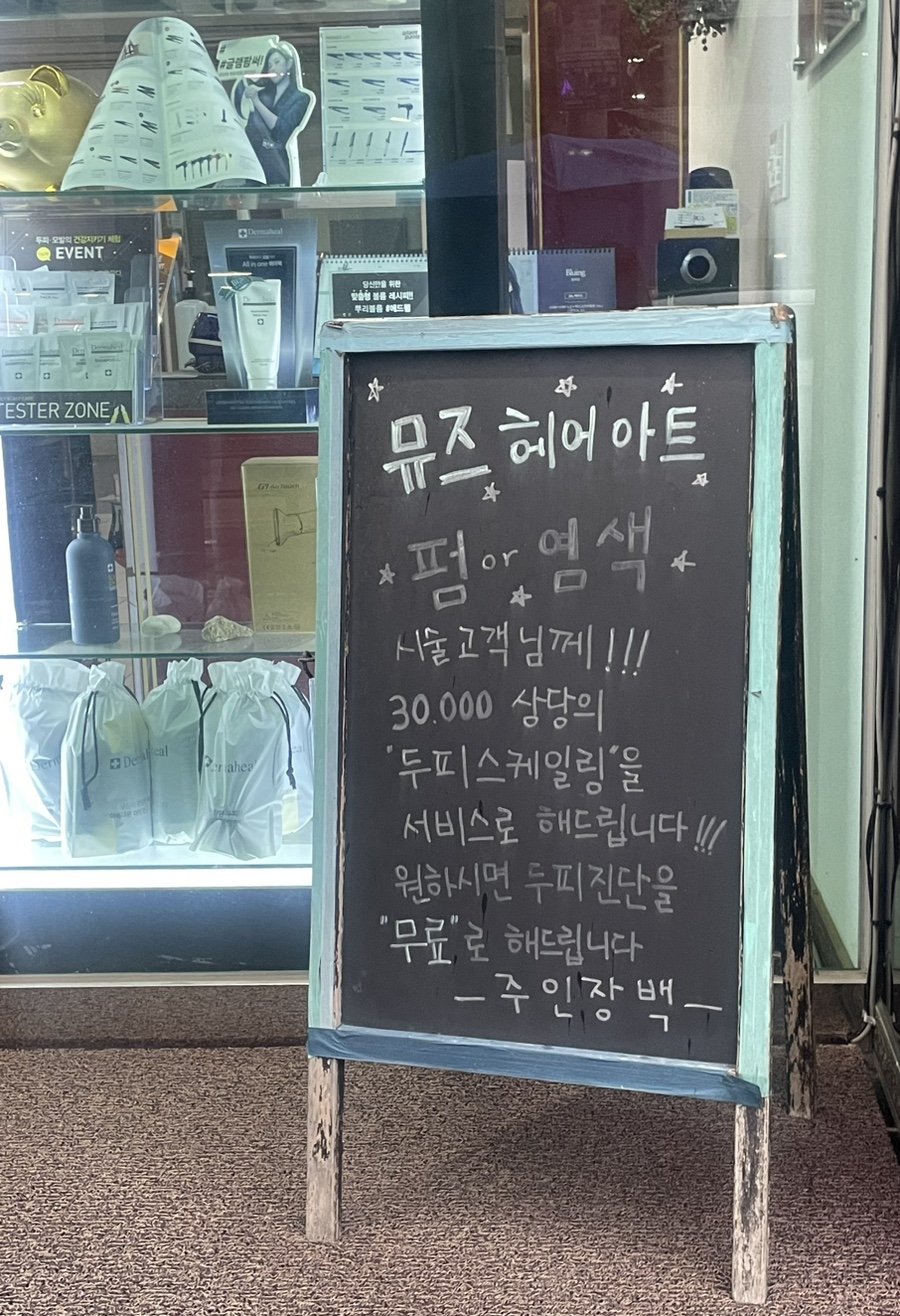 #글램팜써!
두피·모발의 건강지키기 체험
EVENT
Dermaheal
All in one 헤어팩
당신만을 위한
맞춤형 볼륨 레시피!!
뿌리볼륨 #헤드윕
Bluing
TESTER ZONE
Dermaheal
Dermaheal
뮤즈 헤어 아트
펌 or 염색
시술고객님께!!!
30.000 상당의
"두피스케일링"을
서비스로 해드립니다!!!
원하시면 두피진단을
"무료"로 해드립니다
- 주인장백 -